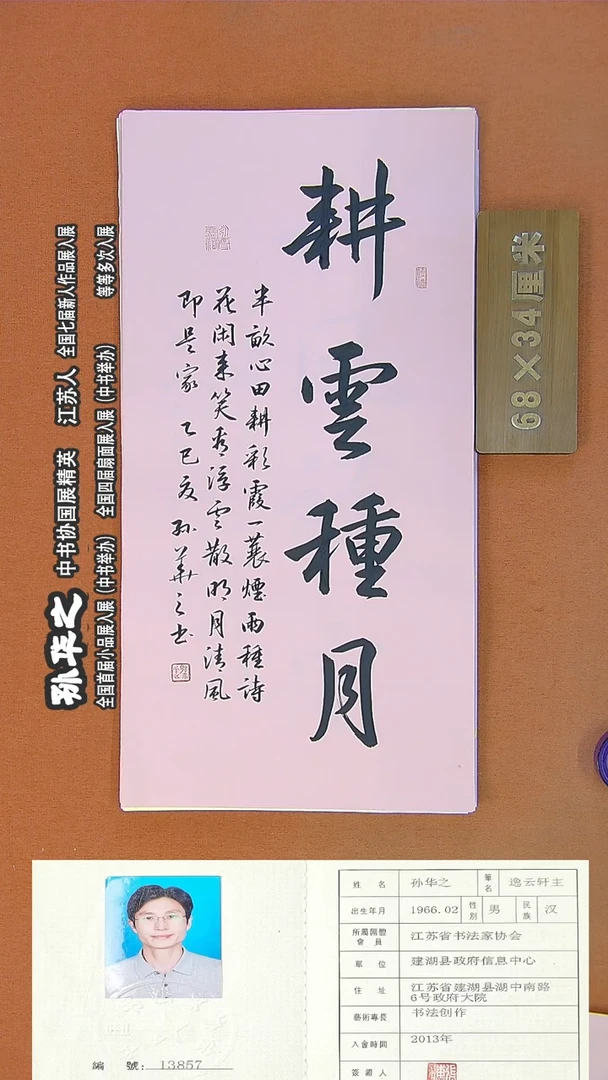 耕雲種月
半畝心田耕彩霞一蓑煙雨種詩
花閑来笑看浮云散明月清風
即是家 乙巳夏 孙華之书
68×34厘米
孙华之 中书协国展精英 江苏人 全国七届新人作品展入展
全国首届小品展入展（中书举办） 全国四届扇面展入展（中书举办） 等等多次入展
姓 名 孙华之 筆名 逸云轩主
出生年月 1966.02 性别 男 民族 汉
所屬團體會員 江苏省书法家协会
單 位 建湖县政府信息中心
住 址 江苏省建湖县湖中南路
6号政府大院
藝術專長 书法创作
入會時間 2013年
簽證人
編 號：13857